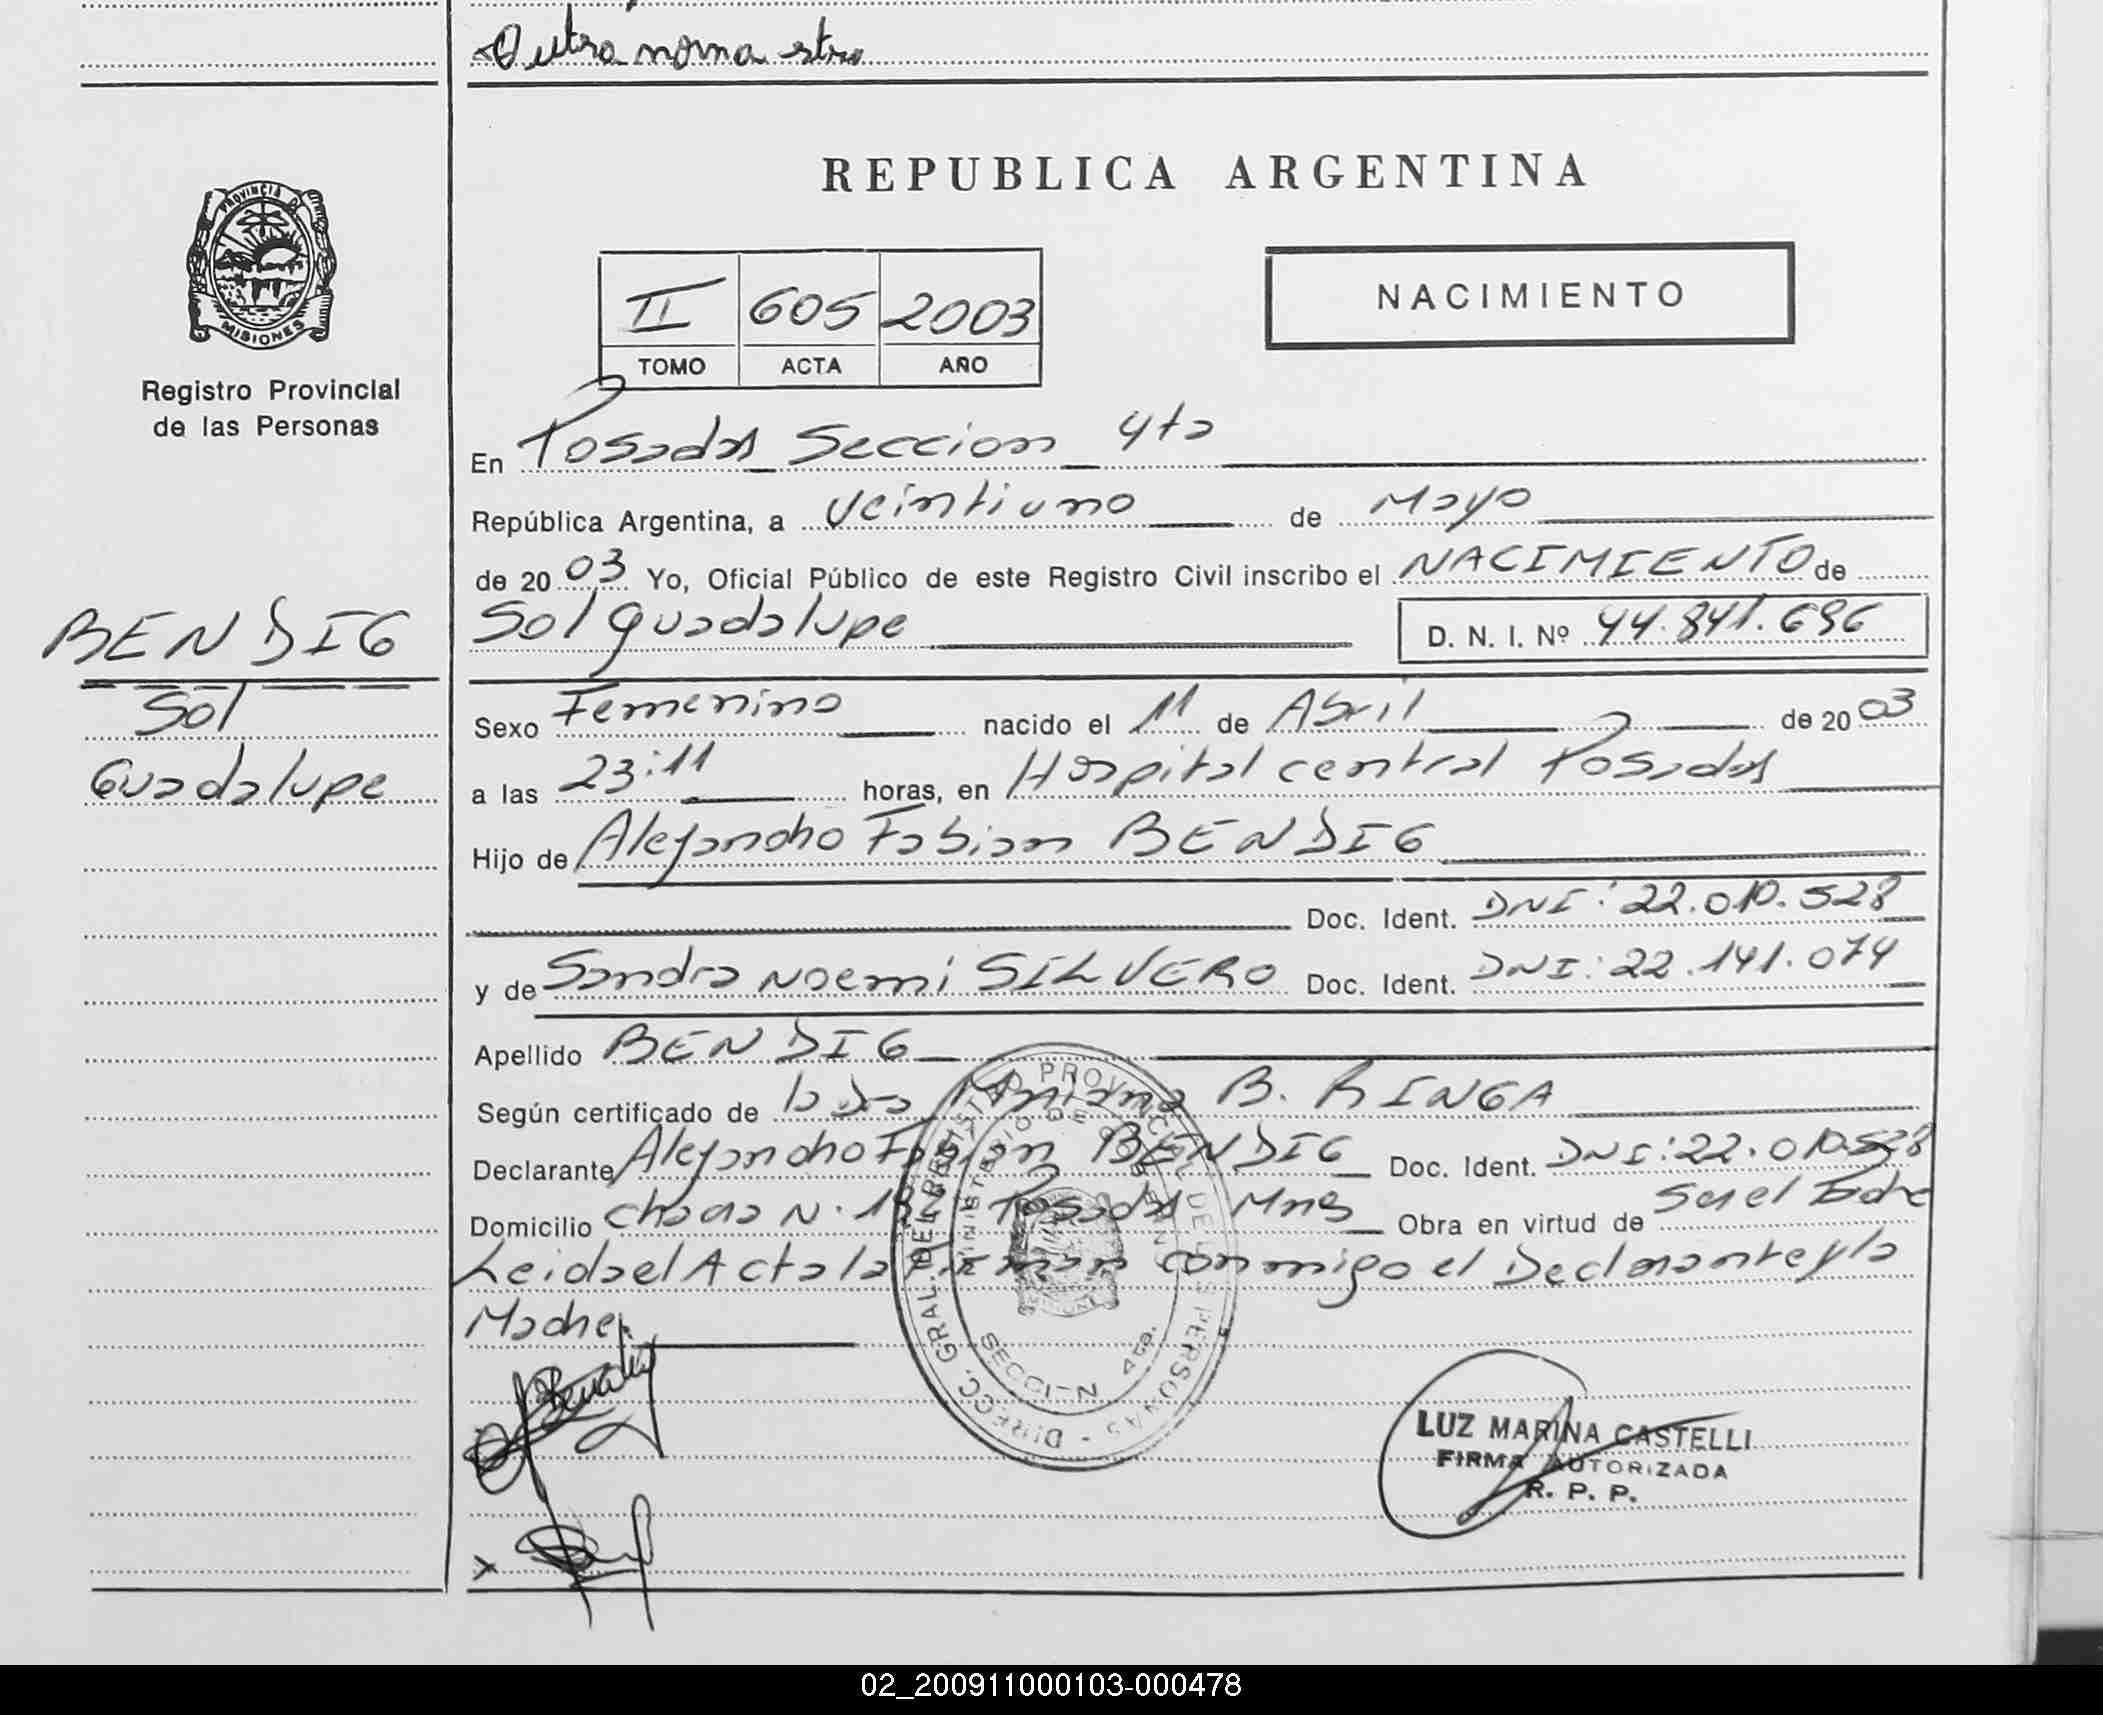 REPUBLICA ARGENTINA
PROVINCIA DE MISIONES
Registro Provincial
de las Personas
II 605 2003
TOMO ACTA AÑO
NACIMIENTO
En Posadas Seccion 4ta
República Argentina, a veintiuno de Mayo
de 20 03 Yo, Oficial Público de este Registro Civil inscribo el NACIMIENTO de
Sol Guadalupe D. N. I. Nº 44.841.696
BENDIG
Sol
Guadalupe
Sexo Femenino nacido el 11 de Abril de 20 03
a las 23:11 horas, en Hospital central Posadas
Hijo de Alejandro Fabian BENDIG
Doc. Ident. DNI: 22.010.528
y de Sandra Noemi SILVERO Doc. Ident. DNI: 22.141.074
Apellido BENDIG
Según certificado de la Dra Mariana B. RINGA
Declarante Alejandro Fabian BENDIG Doc. Ident. DNI: 22.010.528
Domicilio chacra N. 132 Posadas Mnes Obra en virtud de Ser el Padre
Leida el Acta la Firman conmigo el Declarante y la
Madre
DIRECC. GRAL. DEL REGISTRO PROVINCIAL DE LAS PERSONAS
MINISTERIO DE GOBIERNO
SECCION 4ta.
LUZ MARINA CASTELLI
FIRMA AUTORIZADA
R. P. P.
02_200911000103-000478